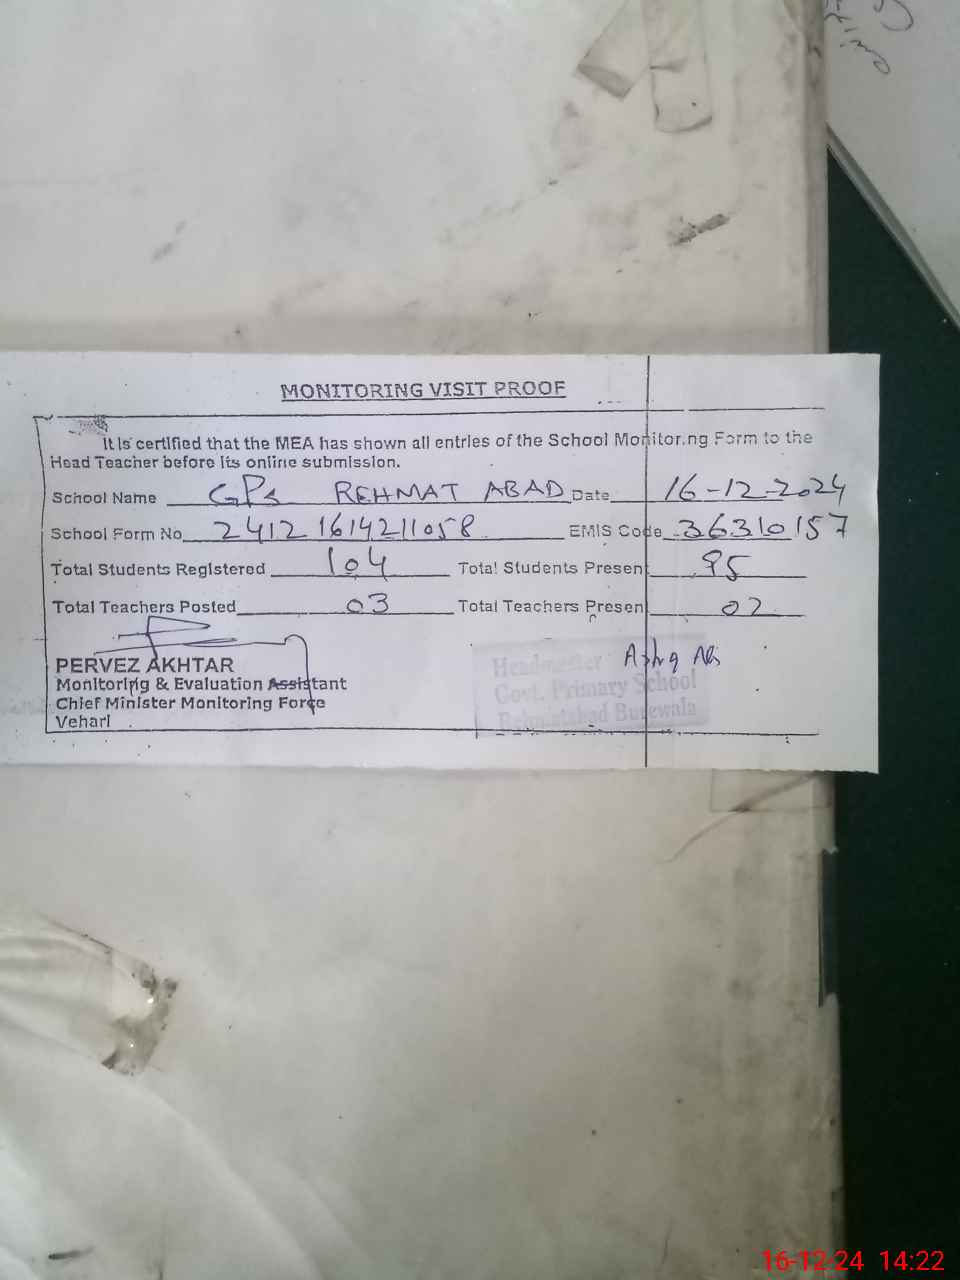 MONITORING VISIT PROOF
It is certified that the MEA has shown all entries of the School Monitoring Form to the
Head Teacher before its online submission.
School Name GPS REHMAT ABAD Date 16-12-2024
School Form No 2412 1614211058 EMIS Code 36310157
Total Students Registered 104 Total Students Present 95
Total Teachers Posted 03 Total Teachers Present 02
PERVEZ AKHTAR
Monitoring & Evaluation Assistant
Chief Minister Monitoring Force
Vehari
Headmaster
Govt. Primary School
Rehmatabad Burewala
16-12-24 14:22